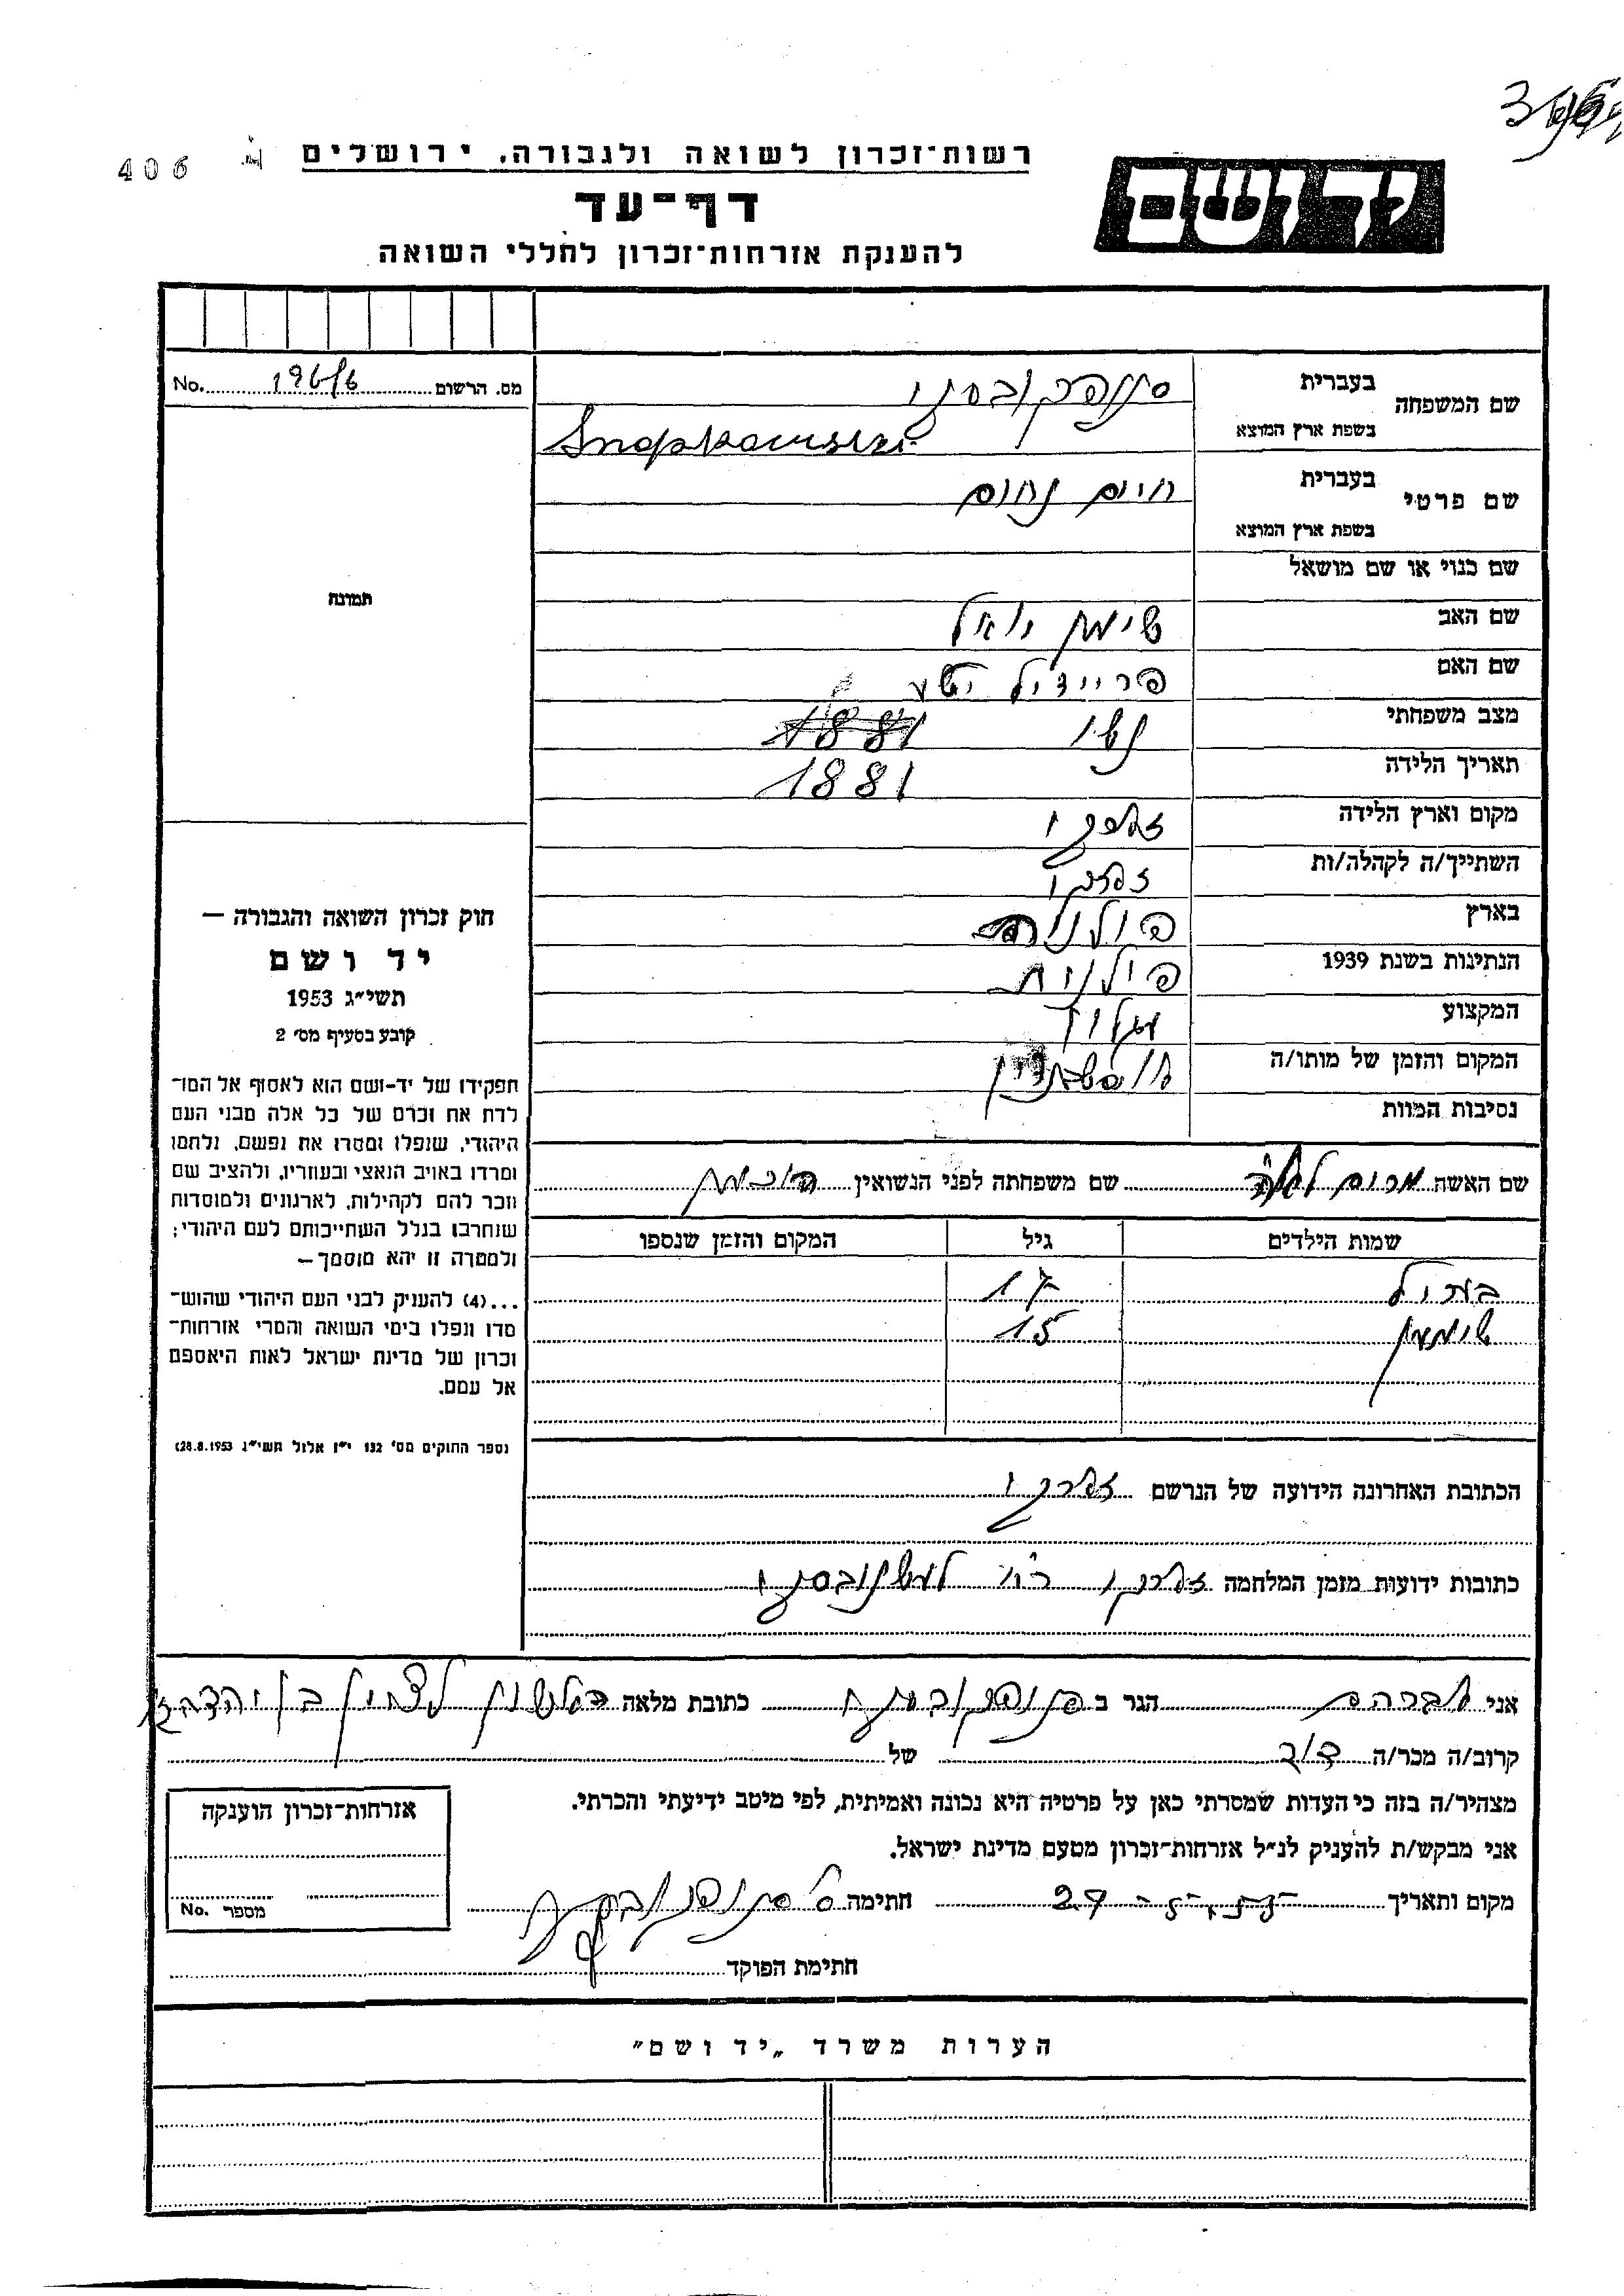 406
רשות־זכרון לשואה ולגבורה, ירושלים
דף־עד
להענקת אזרחות־זכרון לחללי השואה
יד ושם
מס. הרשום No.
שם המשפחה
בעברית סנופקובסקי
בשפת ארץ המוצא Snopkowski
שם פרטי
בעברית חיים נחום
בשפת ארץ המוצא
שם כנוי או שם מושאל
שם האב שימון יואל
שם האם פריידיל יטע
מצב משפחתי נשוי 1881
תאריך הלידה 1881
מקום וארץ הלידה זארקי
השתייך/ה לקהלה/ות זארקי
בארץ פולניה
הנתינות בשנת 1939 פולנית
המקצוע
המקום והזמן של מותו/ה
נסיבות המוות
תמונה
שם האשה מרים שם משפחתה לפני הנשואין
שמות הילדים גיל המקום והזמן שנספו
17
שימעון 15
הכתובת האחרונה הידועה של הנרשם זארקי
כתובות ידועות מזמן המלחמה זארקי
חוק זכרון השואה והגבורה —
יד ושם
תשי״ג 1953
קובע בסעיף מס׳ 2
תפקידו של יד־ושם הוא לאסוף אל המו־
לדת את זכרם של כל אלה מבני העם
היהודי, שנפלו ומסרו את נפשם, נלחמו
ומרדו באויב הנאצי ובעוזריו, ולהציב שם
וזכר להם לקהילות, לארגונים ולמוסדות
שנחרבו בגלל השתייכותם לעם היהודי;
ולמטרה זו יהא מוסמך —
...(4) להעניק לבני העם היהודי שהוש־
מדו ונפלו בימי השואה והמרי אזרחות־
זכרון של מדינת ישראל לאות היאספם
אל עמם.
(ספר החוקים מס׳ 132 י״ז אלול תשי״ג 28.8.1953)
אני אברהם הגר ב סנופקובסקי כתובת מלאה ראשון לציון
קרוב/ה מכר/ה דוד של
מצהיר/ה בזה כי העדות שמסרתי כאן על פרטיה היא נכונה ואמיתית, לפי מיטב ידיעתי והכרתי.
אני מבקש/ת להעניק לנ״ל אזרחות־זכרון מטעם מדינת ישראל.
מקום ותאריך חתימה סנופקובסקי
חתימת הפוקד
אזרחות־זכרון הוענקה
מספר No.
הערות משרד „יד ושם״